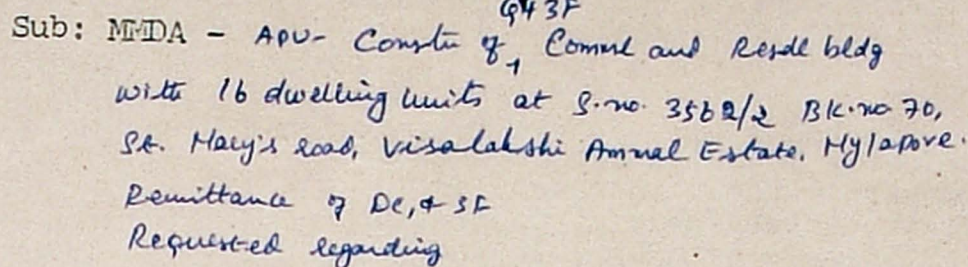 G+3F
Sub: MMDA - APU- Constn of Comml and Resdl bldg
with 16 dwelling units at S.no. 3562/2 BK.no 70,
St. Mary's road, Visalakshi Ammal Estate, Mylapore.
Remittance of DC, & SF
Requested regarding